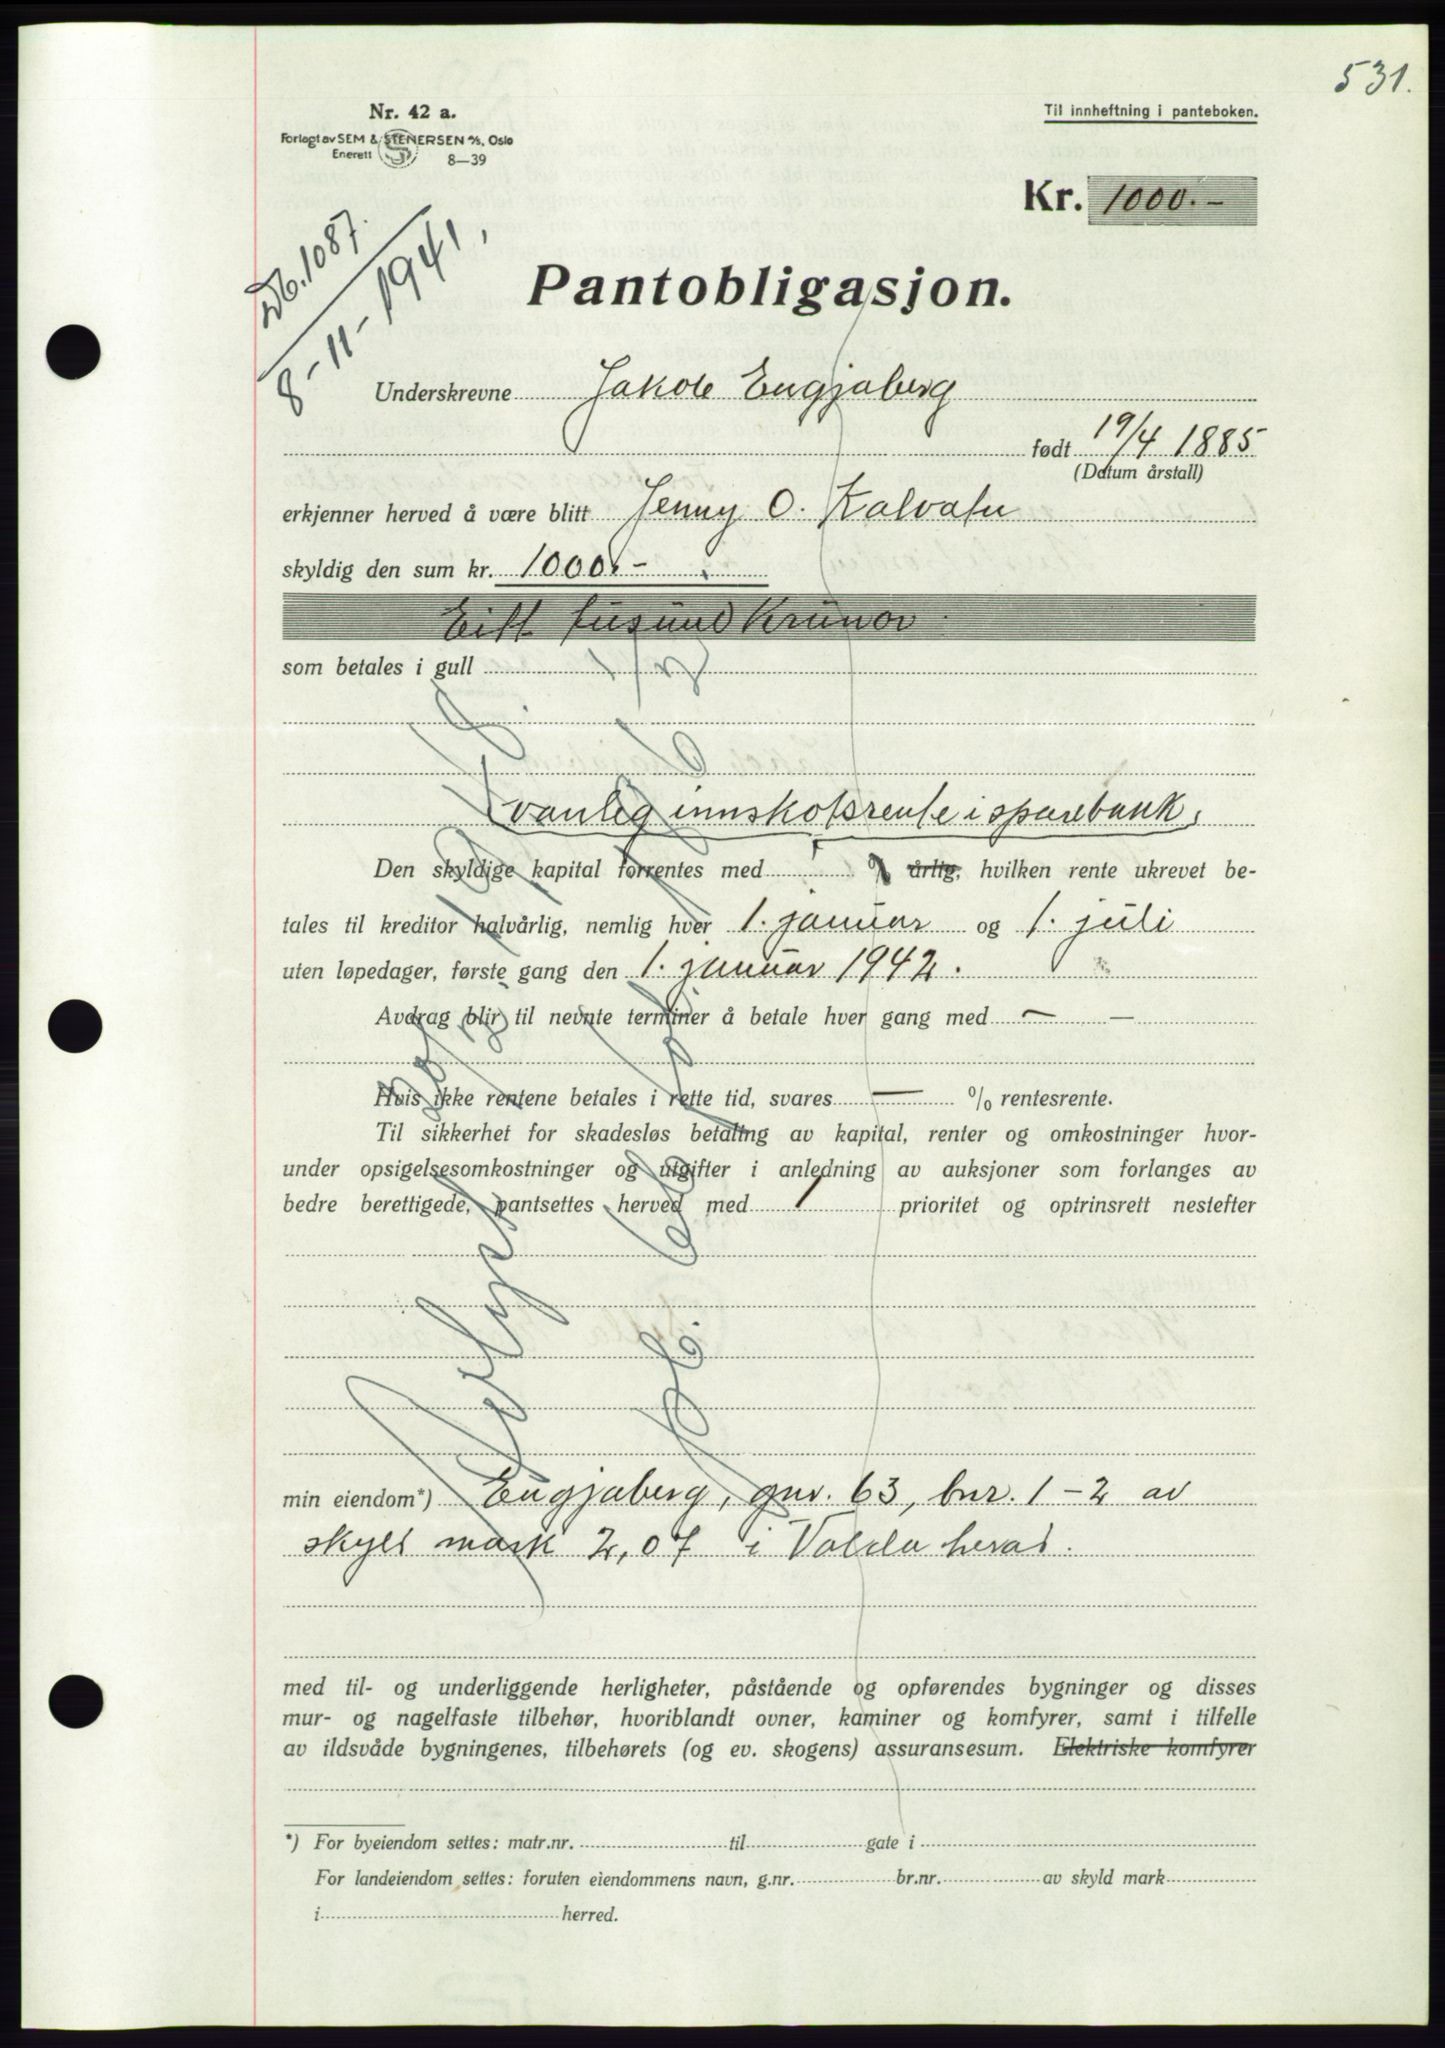 531.
Nr. 42 a.
Forlagt av SEM & STENERSEN A/S, Oslo
Enerett 8—39
Til innheftning i panteboken.
Kr. 1000.-
Db. 1087.
8-11-1941.
Pantobligasjon.
Underskrevne Jakob Engjaberg
født 19/4 1885
(Datum årstall)
erkjenner herved å være blitt Jenny O. Kalvatn
skyldig den sum kr. 1000.-
Eitt tusund krunor
som betales i gull
vanleg innskotsrente i sparebank,
Den skyldige kapital forrentes med % årlig, hvilken rente ukrevet be-
tales til kreditor halvårlig, nemlig hver 1. januar og 1. juli
uten løpedager, første gang den 1. januar 1942.
Avdrag blir til nevnte terminer å betale hver gang med — —
Hvis ikke rentene betales i rette tid, svares — % rentesrente.
Til sikkerhet for skadesløs betaling av kapital, renter og omkostninger hvor-
under opsigelsesomkostninger og utgifter i anledning av auksjoner som forlanges av
bedre berettigede, pantsettes herved med 1 prioritet og optrinsrett nestefter
min eiendom*) Engjaberg, gnr. 63, bnr. 1-2 av
skyld mark 2,07 i Volda herad.
med til- og underliggende herligheter, påstående og opførendes bygninger og disses
mur- og nagelfaste tilbehør, hvoriblandt ovner, kaminer og komfyrer, samt i tilfelle
av ildsvåde bygningenes, tilbehørets (og ev. skogens) assuransesum. Elektriske komfyrer
*) For byeiendom settes: matr.nr. til gate i
For landeiendom settes: foruten eiendommens navn, g.nr. br.nr. av skyld mark
i herred.
Avlyst